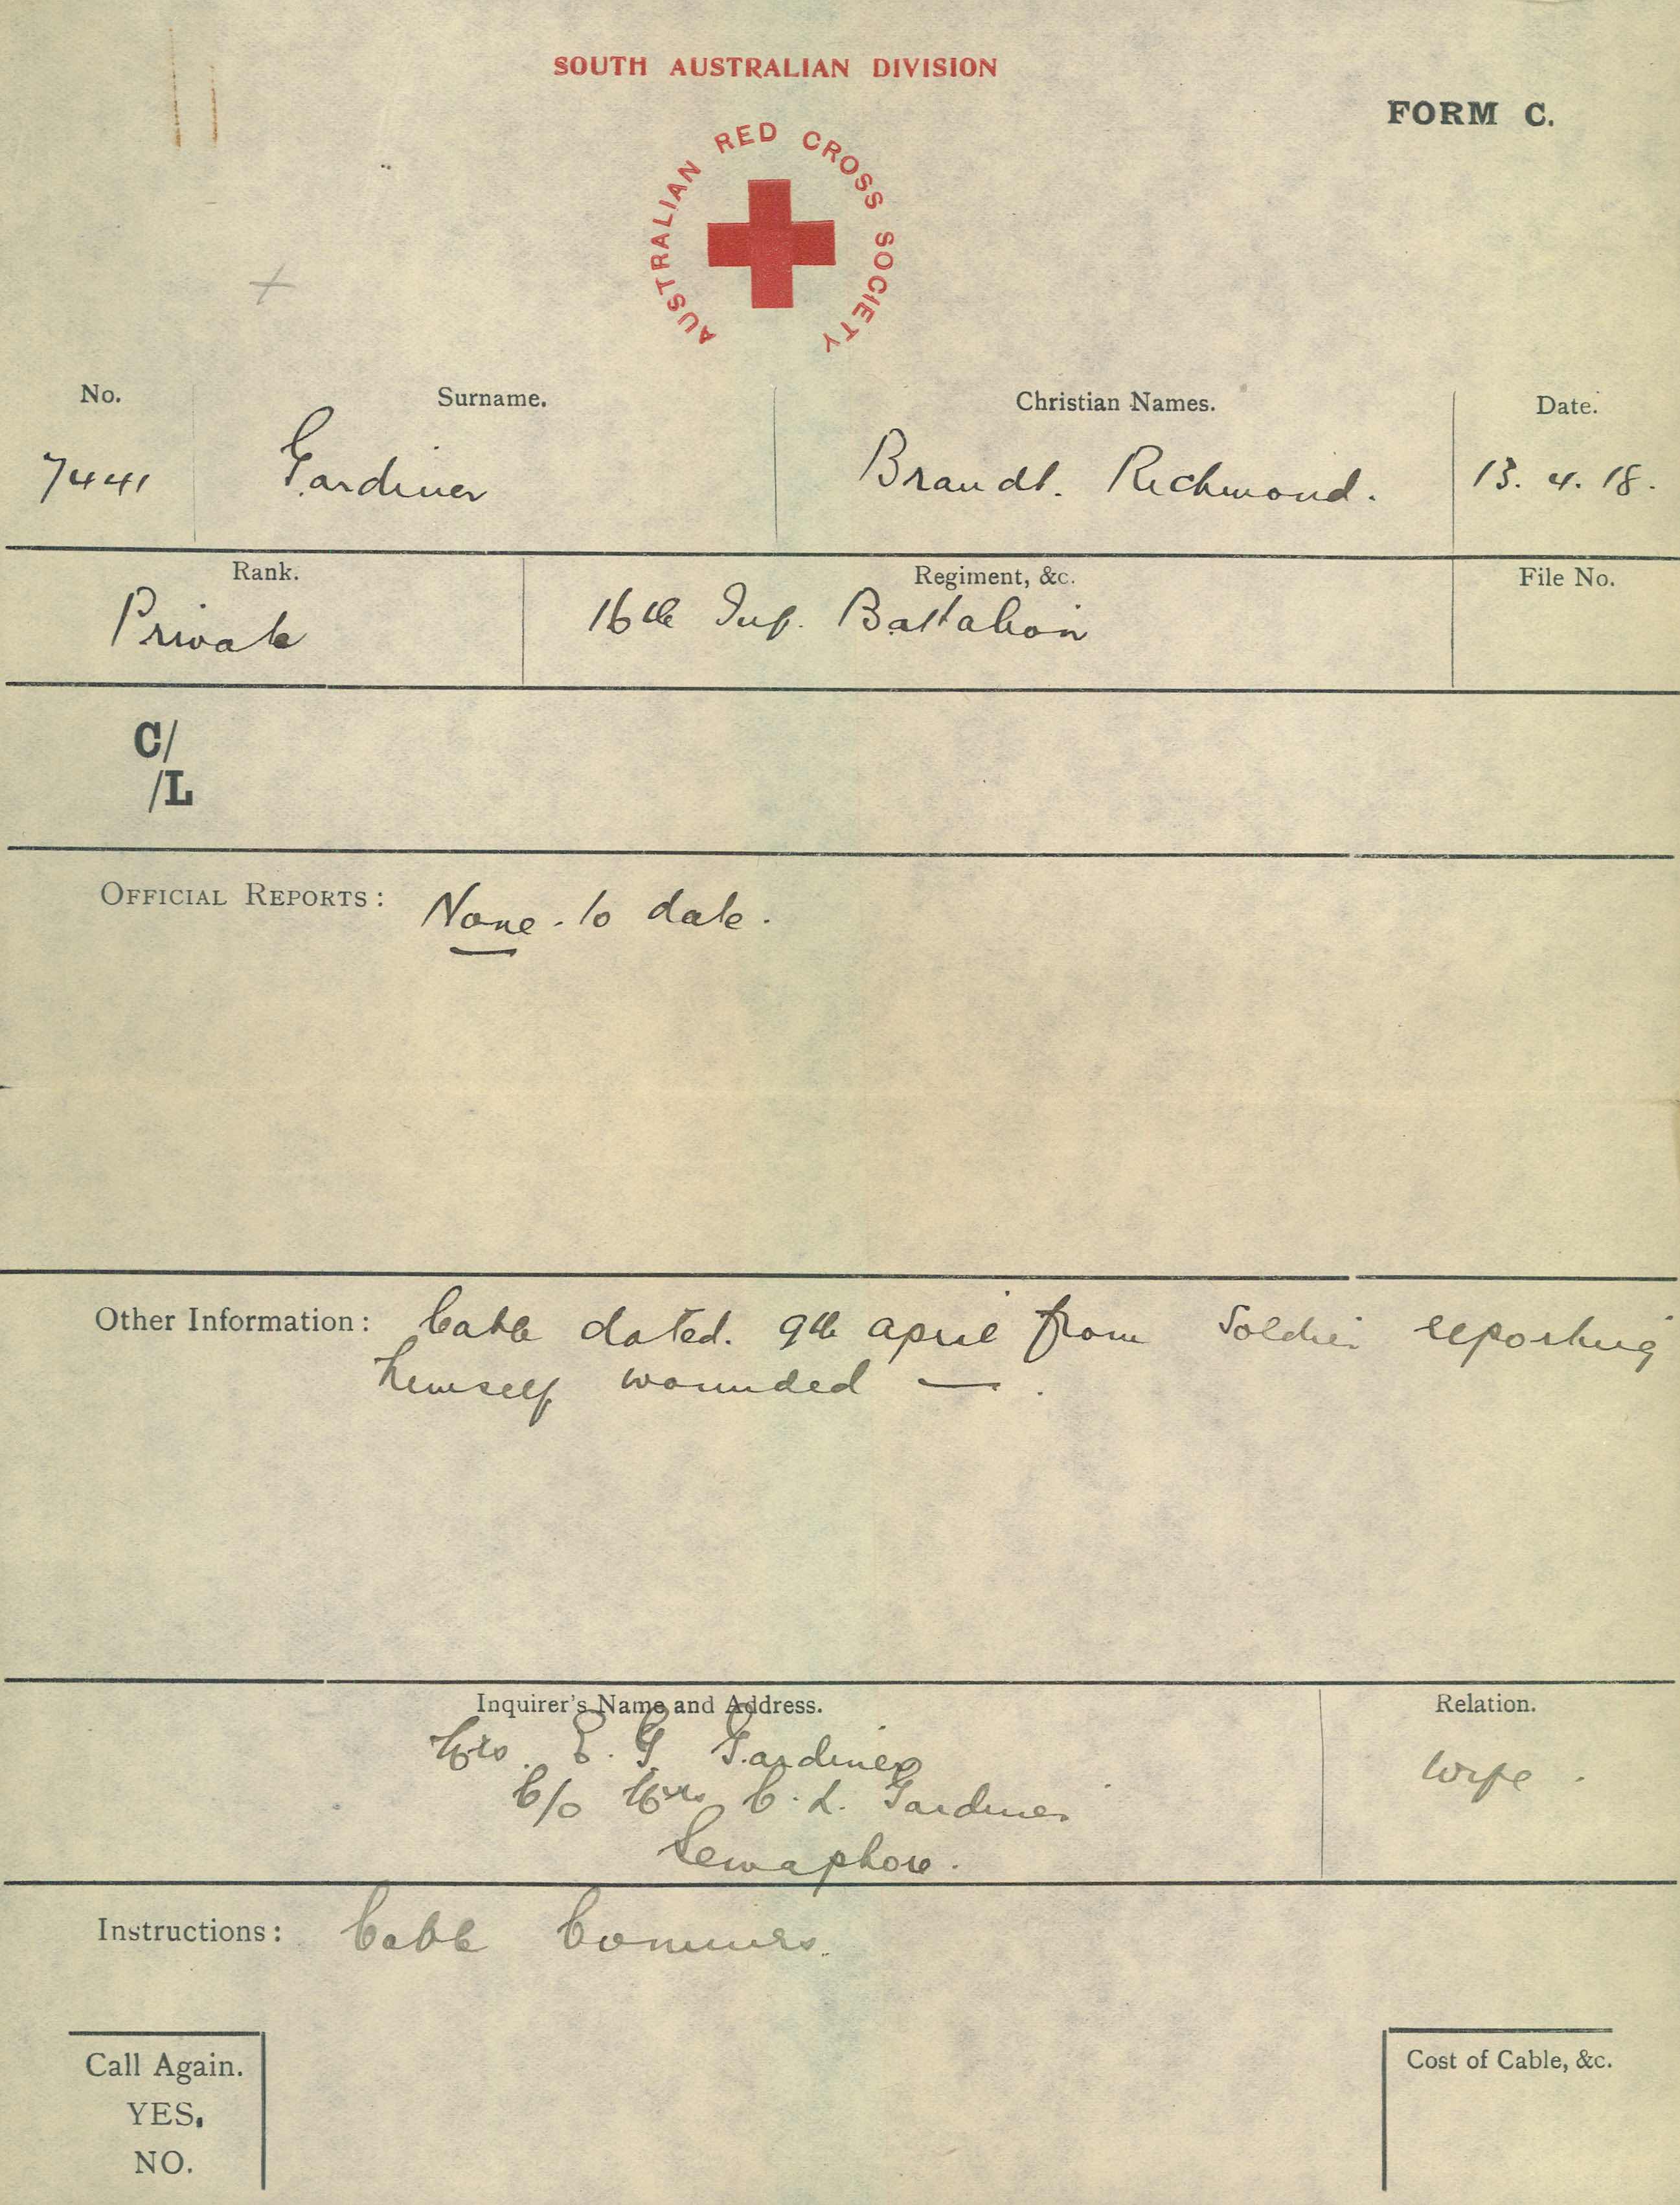 SOUTH AUSTRALIAN DIVISION
FORM C.
AUSTRALIAN RED CROSS SOCIETY
No. Surname. Christian Names. Date.
7441 Gardiner Brandt. Richmond. 13. 4. 18.
Rank. Regiment, &c. File No.
Private 16th Inf. Battalion
C/
/L
OFFICIAL REPORTS: None. to date.
Other Information: Cable dated. 9th april from Soldier reporting
himself wounded — .
Inquirer's Name and Address. Relation.
Mrs. E. G. Gardiner wife.
C/o Mrs C. L. Gardiner
Semaphore.
Instructions: Cable
Call Again. Cost of Cable, &c.
YES.
NO.